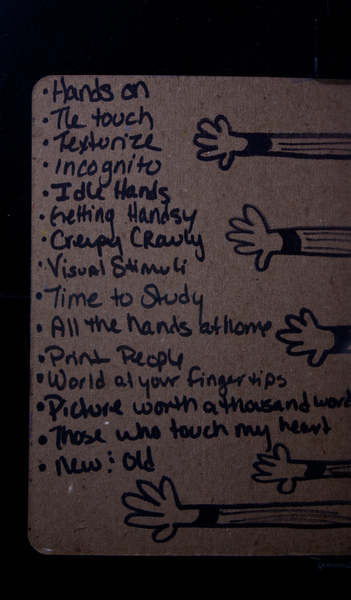 • Hands on
• The touch
• Texturize
• Incognito
• Idle Hands
• Getting Handsy
• Creepy Crawly
• Visual Stimuli
• Time to Study
• All the hands at home
• Print People
• World at your fingertips
• Picture worth a thousand word
• Those who touch my heart
• New : Old